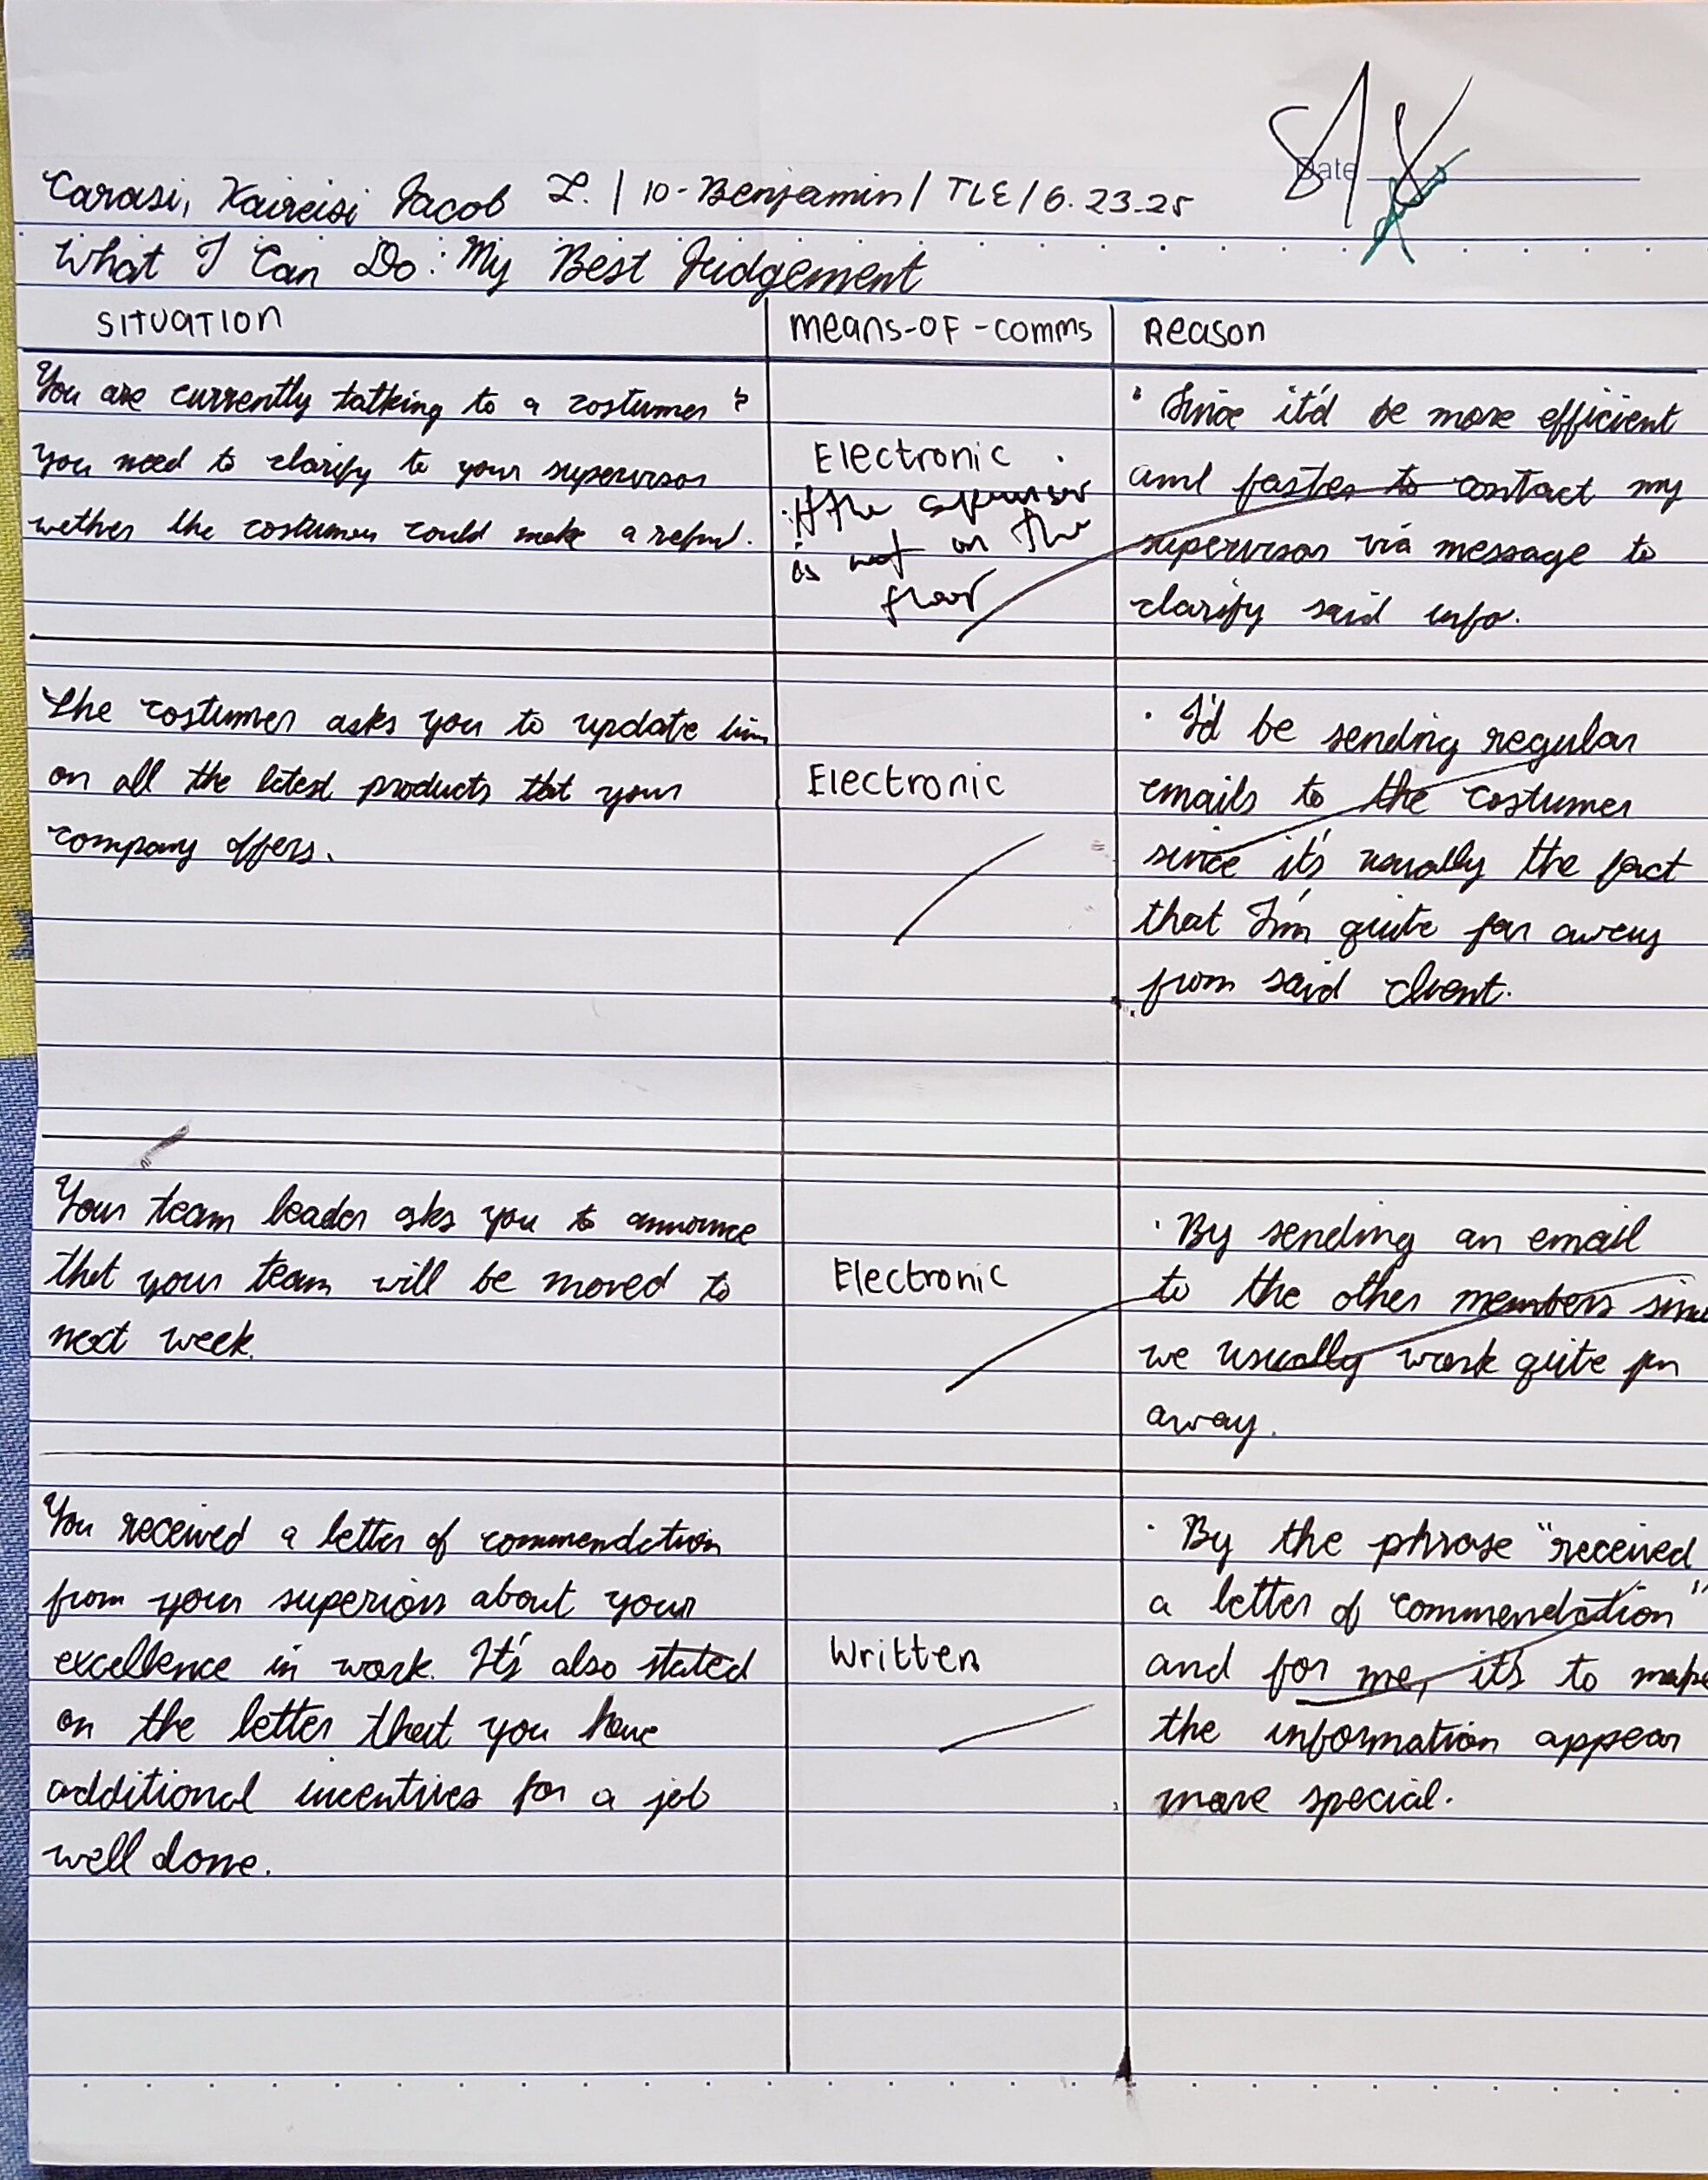 Date
8/8
Carasi, Kaireisi Jacob L. | 10-Benjamin / TLE / 6.23.25
What I Can Do: My Best Judgement
SITUATION
You are currently talking to a costumer &
you need to clarify to your supervisor
wether the costumer could make a refund.
The costumer asks you to update him
on all the latest products that your
company offers.
Your team leader asks you to announce
that your team will be moved to
next week.
You received a letter of commendation
from your superiors about your
excellence in work. It's also stated
on the letter that you have
additional incentives for a job
well done.
means-OF-comms
Electronic
If the supervisor
is not on the
floor
Electronic
Electronic
Written
Reason
• Since it'd be more efficient
and faster to contact my
supervisor via message to
clarify said info.
• I'd be sending regular
emails to the costumer
since it's usually the fact
that I'm quite far away
from said client.
• By sending an email
to the other members
we usually work quite far
away.
• By the phrase "received
a letter of commendation"
and for me, it's to make
the information appear
more special.